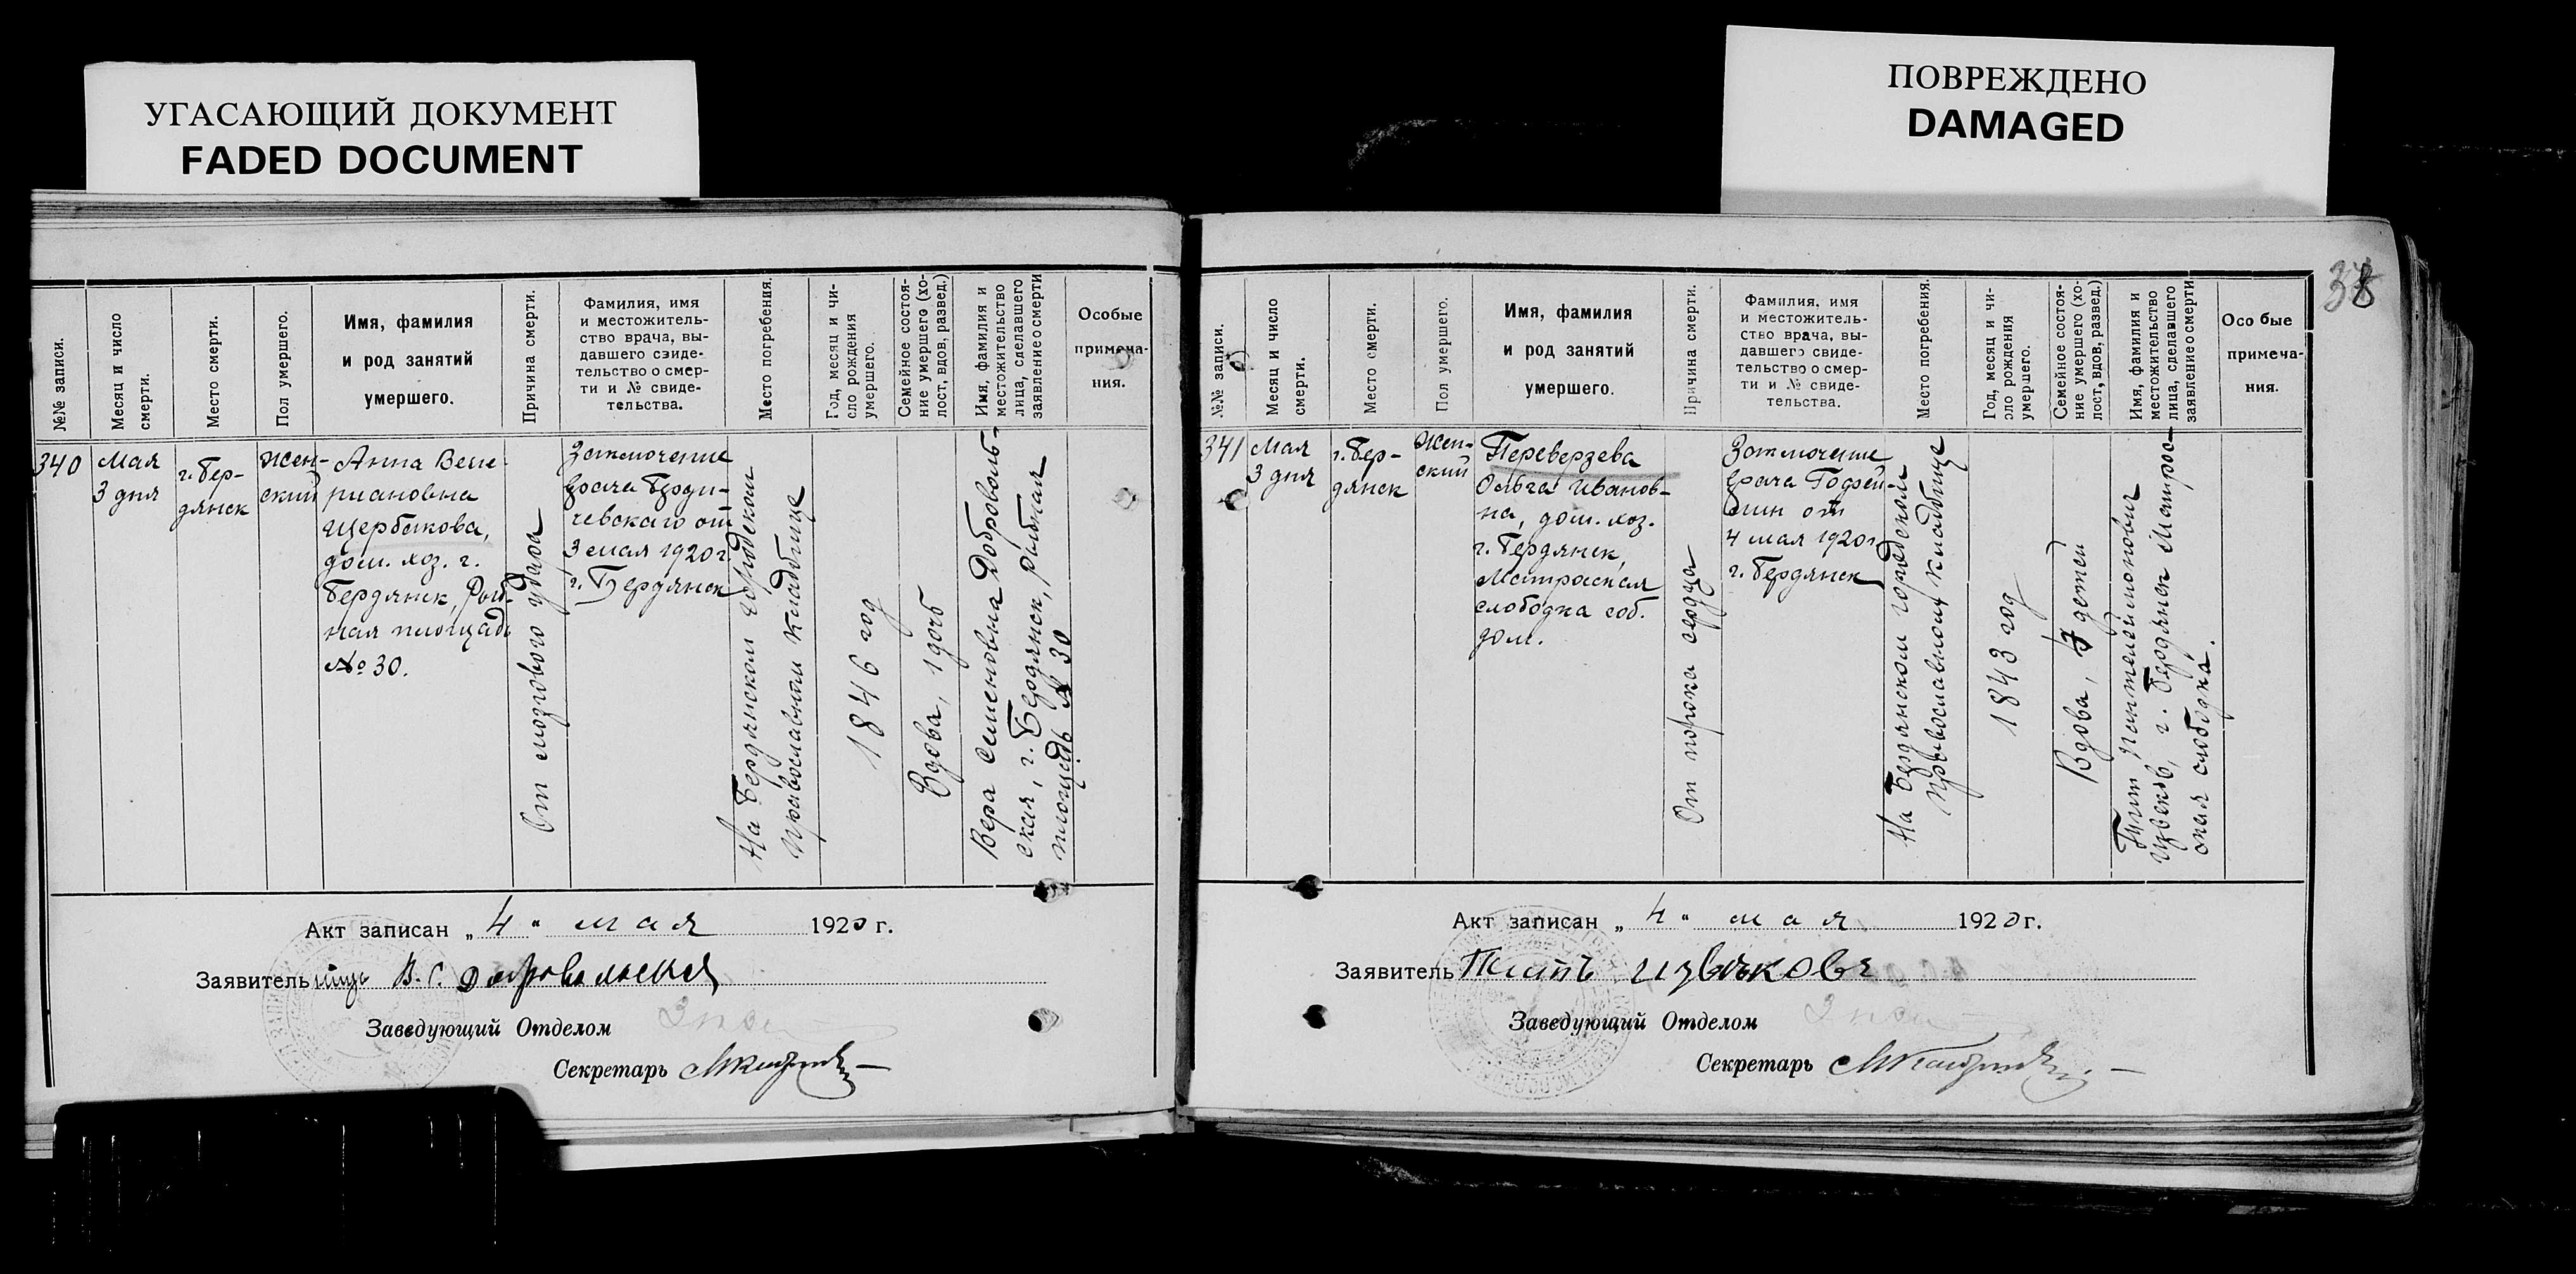 УГАСАЮЩИЙ ДОКУМЕНТ
FADED DOCUMENT
ПОВРЕЖДЕНО
DAMAGED
38
№№ записи.
Месяц и число
смерти.
Место смерти.
Пол умершего.
Имя, фамилия
и род занятий
умершего.
Причина смерти.
Фамилия, имя
и местожитель-
ство врача, вы-
давшего свиде-
тельство о смер-
ти и № свиде-
тельства.
Место погребения.
Год, месяц и чи-
сло рождения
умершего.
Семейное состоя-
ние умершего (хо-
лост, вдов, развед.)
Имя, фамилия и
местожительство
лица, сделавшего
заявление о смерти
Особые
примеча-
ния.
340
Мая
3 дня
г. Бер-
дянск
жен-
ский
Анна Вене-
риановна
Щербакова,
дом. хоз. г.
Бердянск, Рыб-
ная площадь
№ 30.
От мозгового удара
Заключение
врача Бреди-
чевскаго от
3 мая 1920 г.
г. Бердянск
На Бердянском городском
православном кладбище
1846 год
Вдова, 1 дочь
Вера Семеновна Доброволь-
ская, г. Бердянск, Рыбная
площадь № 30
Акт записан „4“ мая 1920 г.
Заявительница В. С. Добровольская
Заведующий Отделом
Секретарь
№№ записи.
Месяц и число
смерти.
Место смерти.
Пол умершего.
Имя, фамилия
и род занятий
умершего.
Причина смерти.
Фамилия, имя
и местожитель-
ство врача, вы-
давшего свиде-
тельство о смер-
ти и № свиде-
тельства.
Место погребения.
Год, месяц и чи-
сло рождения
умершего.
Семейное состоя-
ние умершего (хо-
лост, вдов, развед.)
Имя, фамилия и
местожительство
лица, сделавшего
заявление о смерти
Особые
примеча-
ния.
341
Мая
3 дня
г. Бер-
дянск
жен-
ский
Переверзева
Ольга Иванов-
на, дом. хоз.
г. Бердянск,
Матросская
слободка соб.
дом.
От порока сердца
Заключение
врача
от
4 мая 1920 г.
г. Бердянск
На Бердянском городском
православном кладбище
1843 год
Вдова, детей
Пантелеймонович
г. Бердянск Матрос-
ская слободка.
Акт записан „4“ мая 1920 г.
Заявитель
Заведующий Отделом
Секретарь